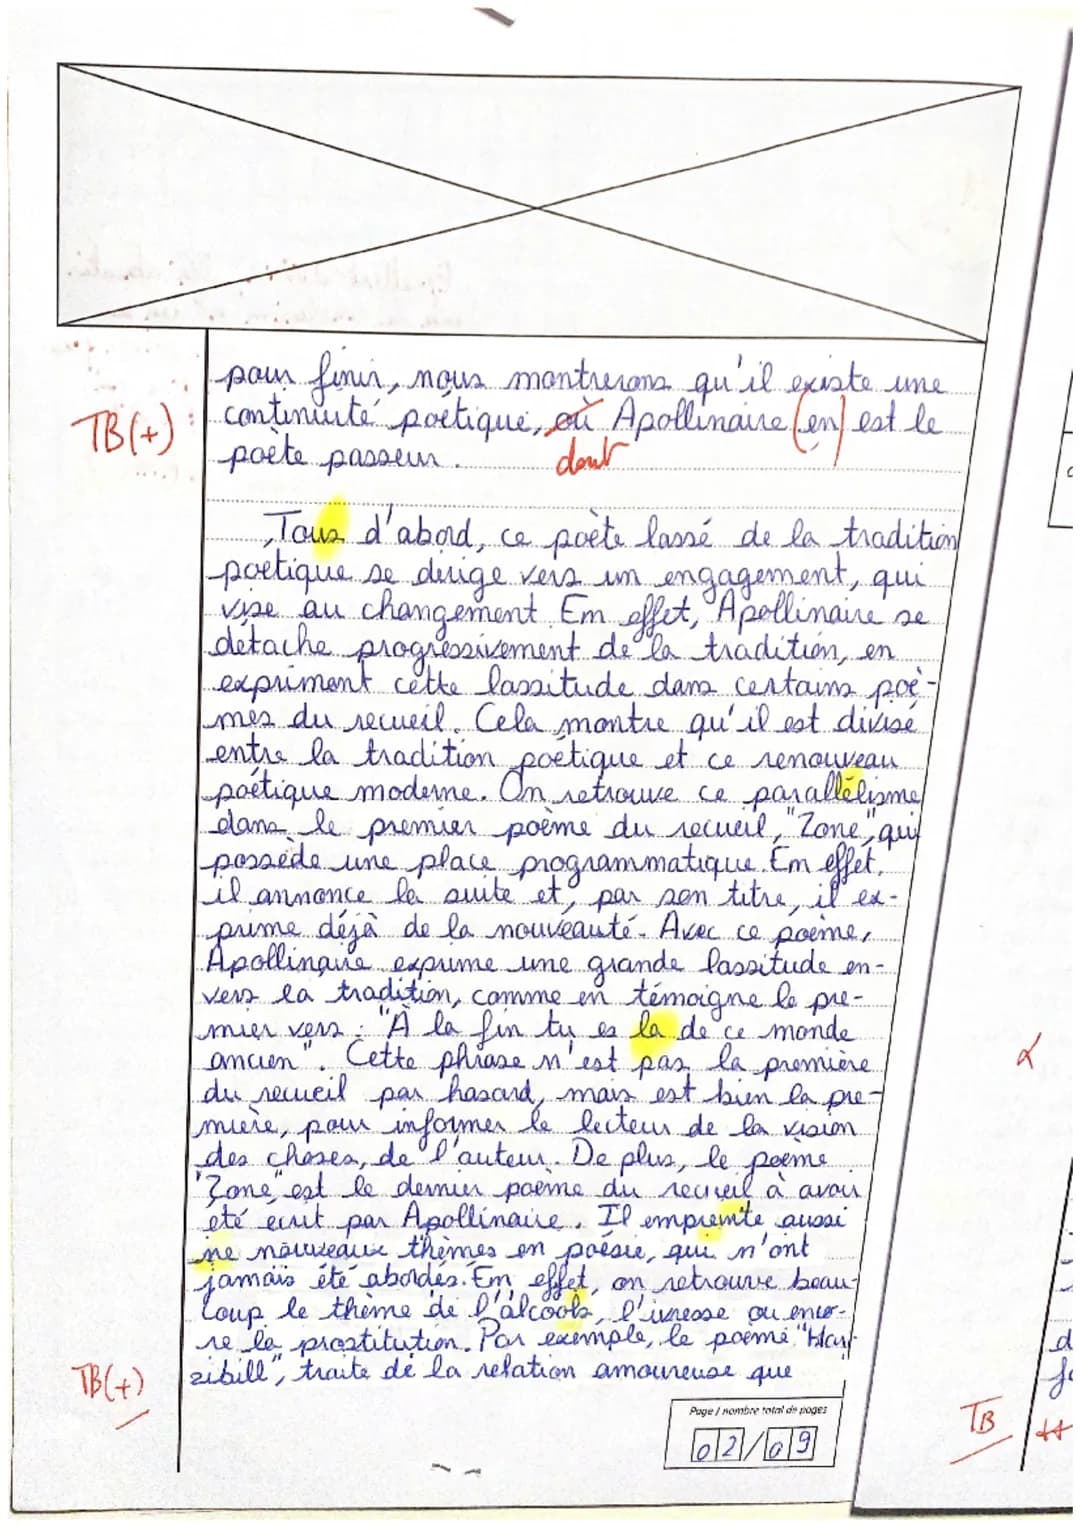 pour finir, nous montrerons qu'il existe une
continuité poétique, où Apollinaire (en) est le
TB(+)
dont
poète passeur.
Tous d'abord, ce poète lassé de la tradition
poétique se dirige vers un engagement, qui
vise au changement. Em effet, Apollinaire se
détache progressivement de la tradition, en
exprimant cette lassitude dans certains poè-
mes du recueil. Cela montre qu'il est divisé
entre la tradition poétique et ce renouveau
poétique moderne. On retrouve ce parallélisme
dans le premier poème du recueil, "Zone", qui
possède une place programmatique. Em effet,
il annonce la suite et, par son titre, il ex-
prime déjà de la nouveauté. Avec ce poème,
Apollinaire exprime une grande lassitude en-
vers la tradition, comme en témoigne le pre-
mier vers : "À la fin tu es la de ce monde
ancien". Cette phrase n'est pas la première
du recueil par hasard, mais est bien la pre-
mière, pour informer le lecteur de la vision
des choses, de l'auteur. De plus, le poème
"Zone" est le dernier poème du recueil à avoir
été écrit par Apollinaire. Il empreinte aussi
ne nouveaux thèmes en poésie, qui n'ont
jamais été abordés. Em effet, on retrouve beau-
coup le thème de l'alcools, l'ivresse ou enco-
re la prostitution. Par exemple, le poème "Mar-
zibill", traite de la relation amoureuse que
TB(+)
Page / nombre total de pages
02/09
TB